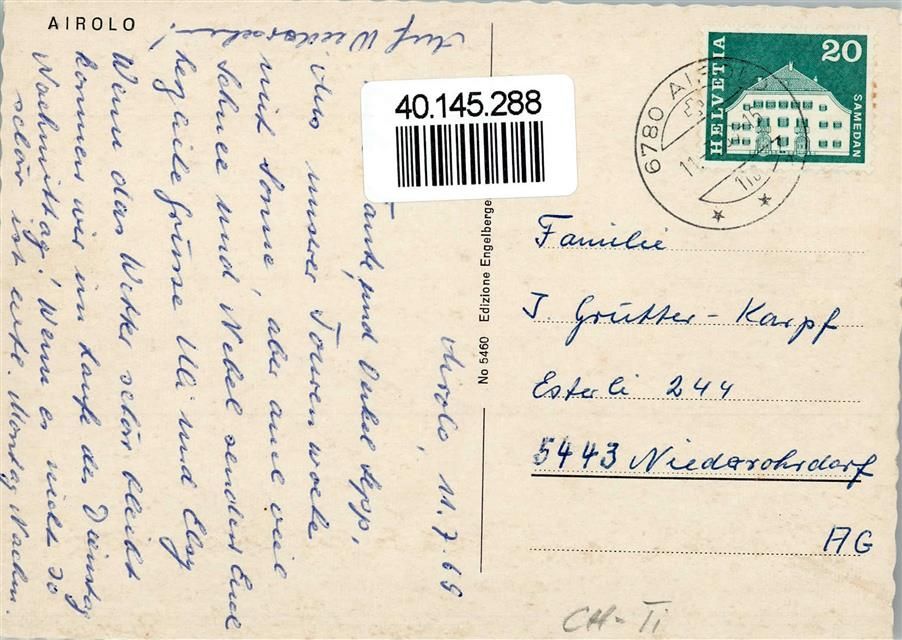 AIROLO
Airolo, 11.7.69
Tante und Onkel Sepp,
Aus unserer Tourenwoche
mit Sonne, aber auch viel
Schnee und Nebel senden Euch
herzliche Grüsse Ueli und Elsy
Wenn das Wetter schön bleibt
kommen wir im Laufe des Dienstag
Nachmittag! Wenn es nicht so
schön ist erst Montag Nachm.
Auf Wiedersehen!
40.145.288
No 5460 Edizione Engelberge
HELVETIA
20
SAMEDAN
6780 AIROLO
11
Familie
J. Grütter-Karpf
Esterli 244
5443 Niederrohrdorf
AG
CH-Ti